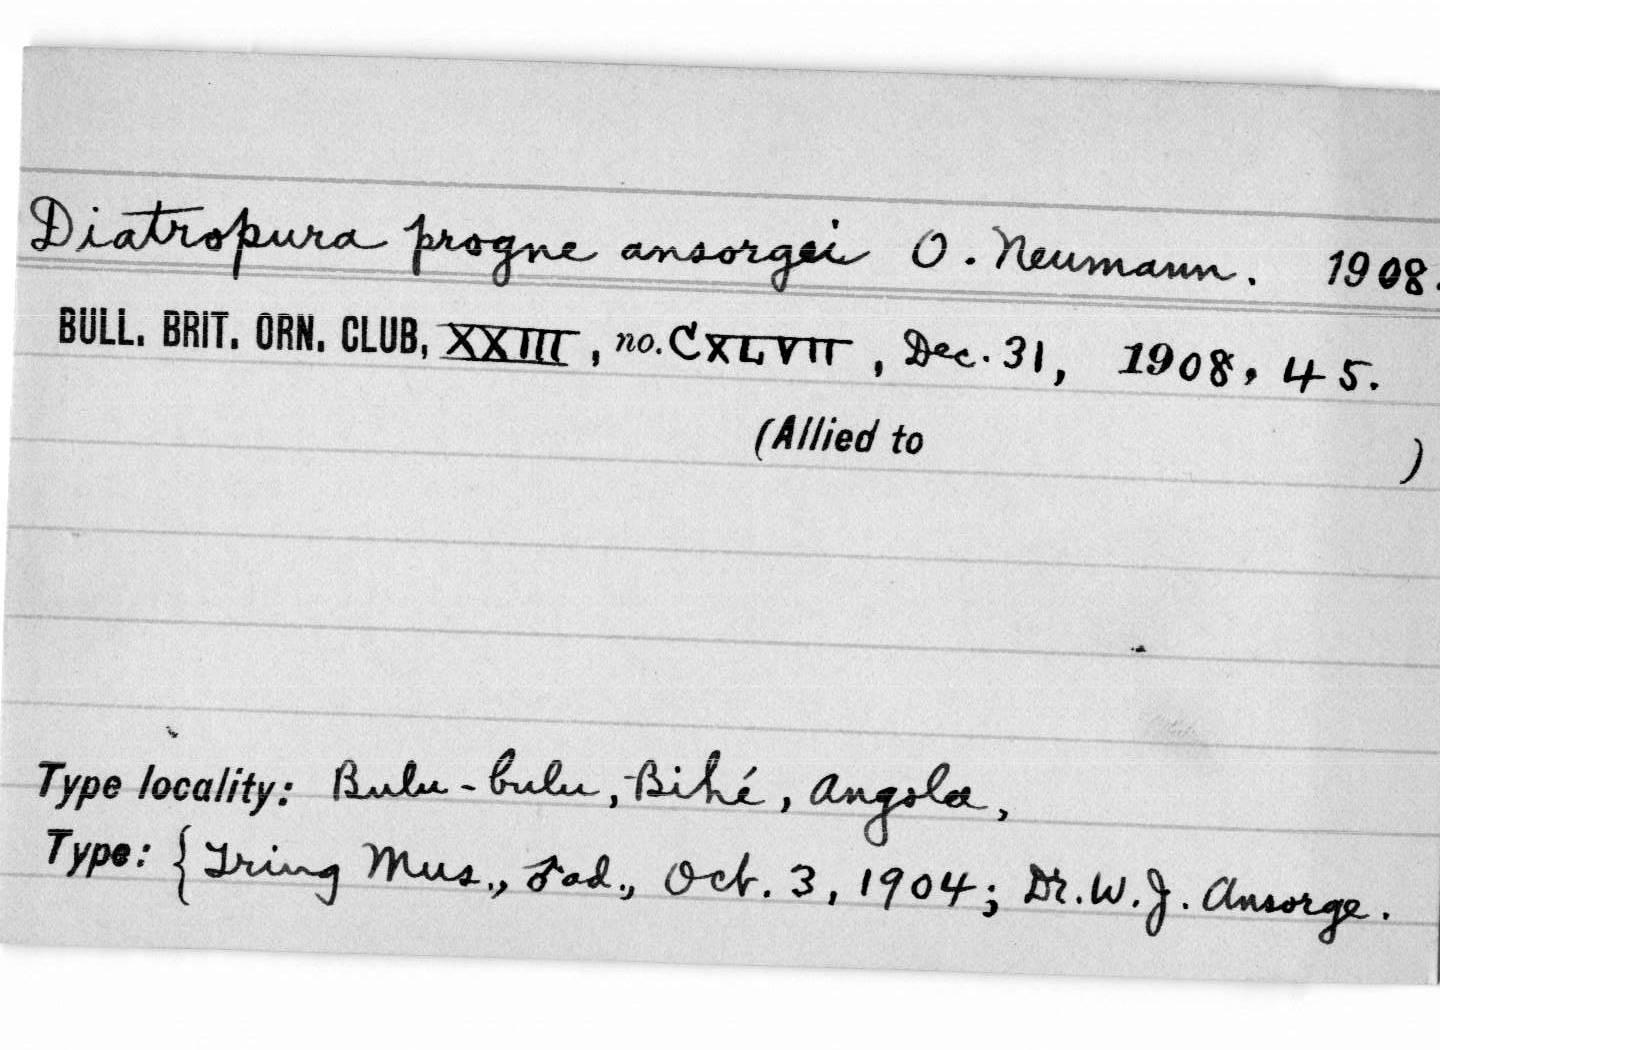 Diatropura progne ansorgei O. Neumann. 1908.
BULL. BRIT. ORN. CLUB, XXIII, no. CXLVII, Dec. 31, 1908, 45.
(Allied to )
Type locality: Bulu-bulu, Bihé, Angola,
Type: {Tring Mus., ♂ ad., Oct. 3, 1904; Dr. W. J. Ansorge.